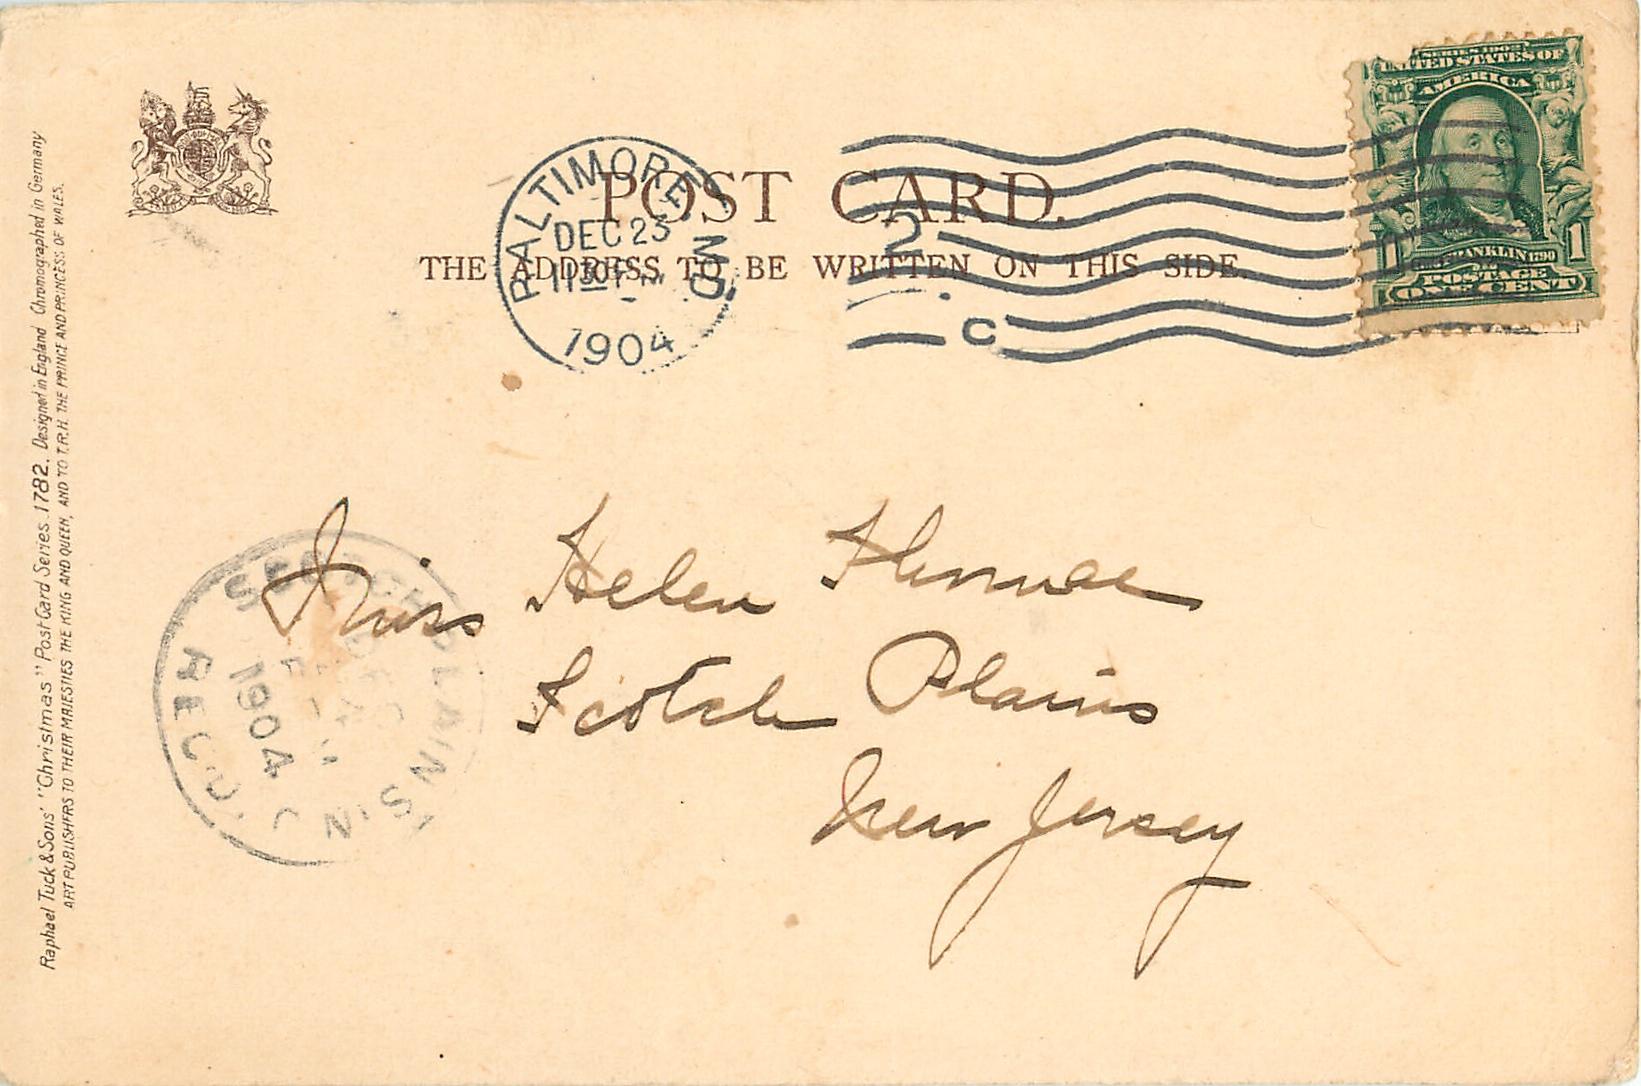 Raphael Tuck & Sons' "Christmas" Post Card Series 1782. Designed in England Chromographed in Germany
ART PUBLISHERS TO THEIR MAJESTIES THE KING AND QUEEN, AND TO T.R.H. THE PRINCE AND PRINCESS OF WALES.
POST CARD.
THE ADDRESS TO BE WRITTEN ON THIS SIDE.
BALTIMORE MD
DEC 23
1904
2
C
SERIES 1902
UNITED STATES OF
AMERICA
FRANKLIN 1790
1 1
POSTAGE
ONE CENT
Miss Helen
Scotch Plains
New Jersey
SCOTCH PLAINS, N.J.
1904
REC'D.